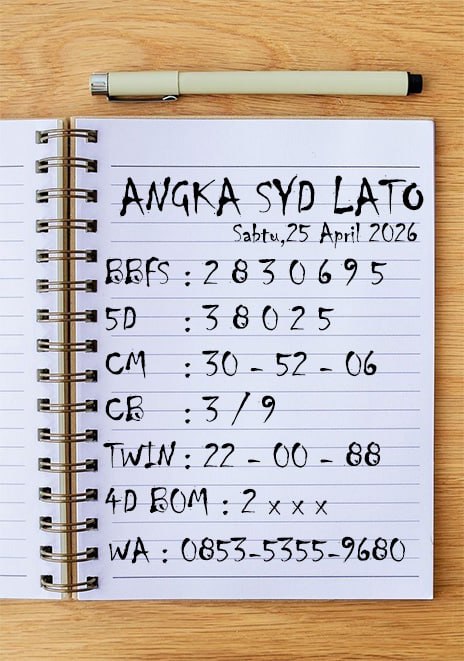 ANGKA SYD LATO
Sabtu,25 April 2026
BBFS : 2 8 3 0 6 9 5
5D : 3 8 0 2 5
CM : 30 - 52 - 06
CB : 3 / 9
TWIN : 22 - 00 - 88
4D BOM : 2 x x x
WA : 0853-5355-9680